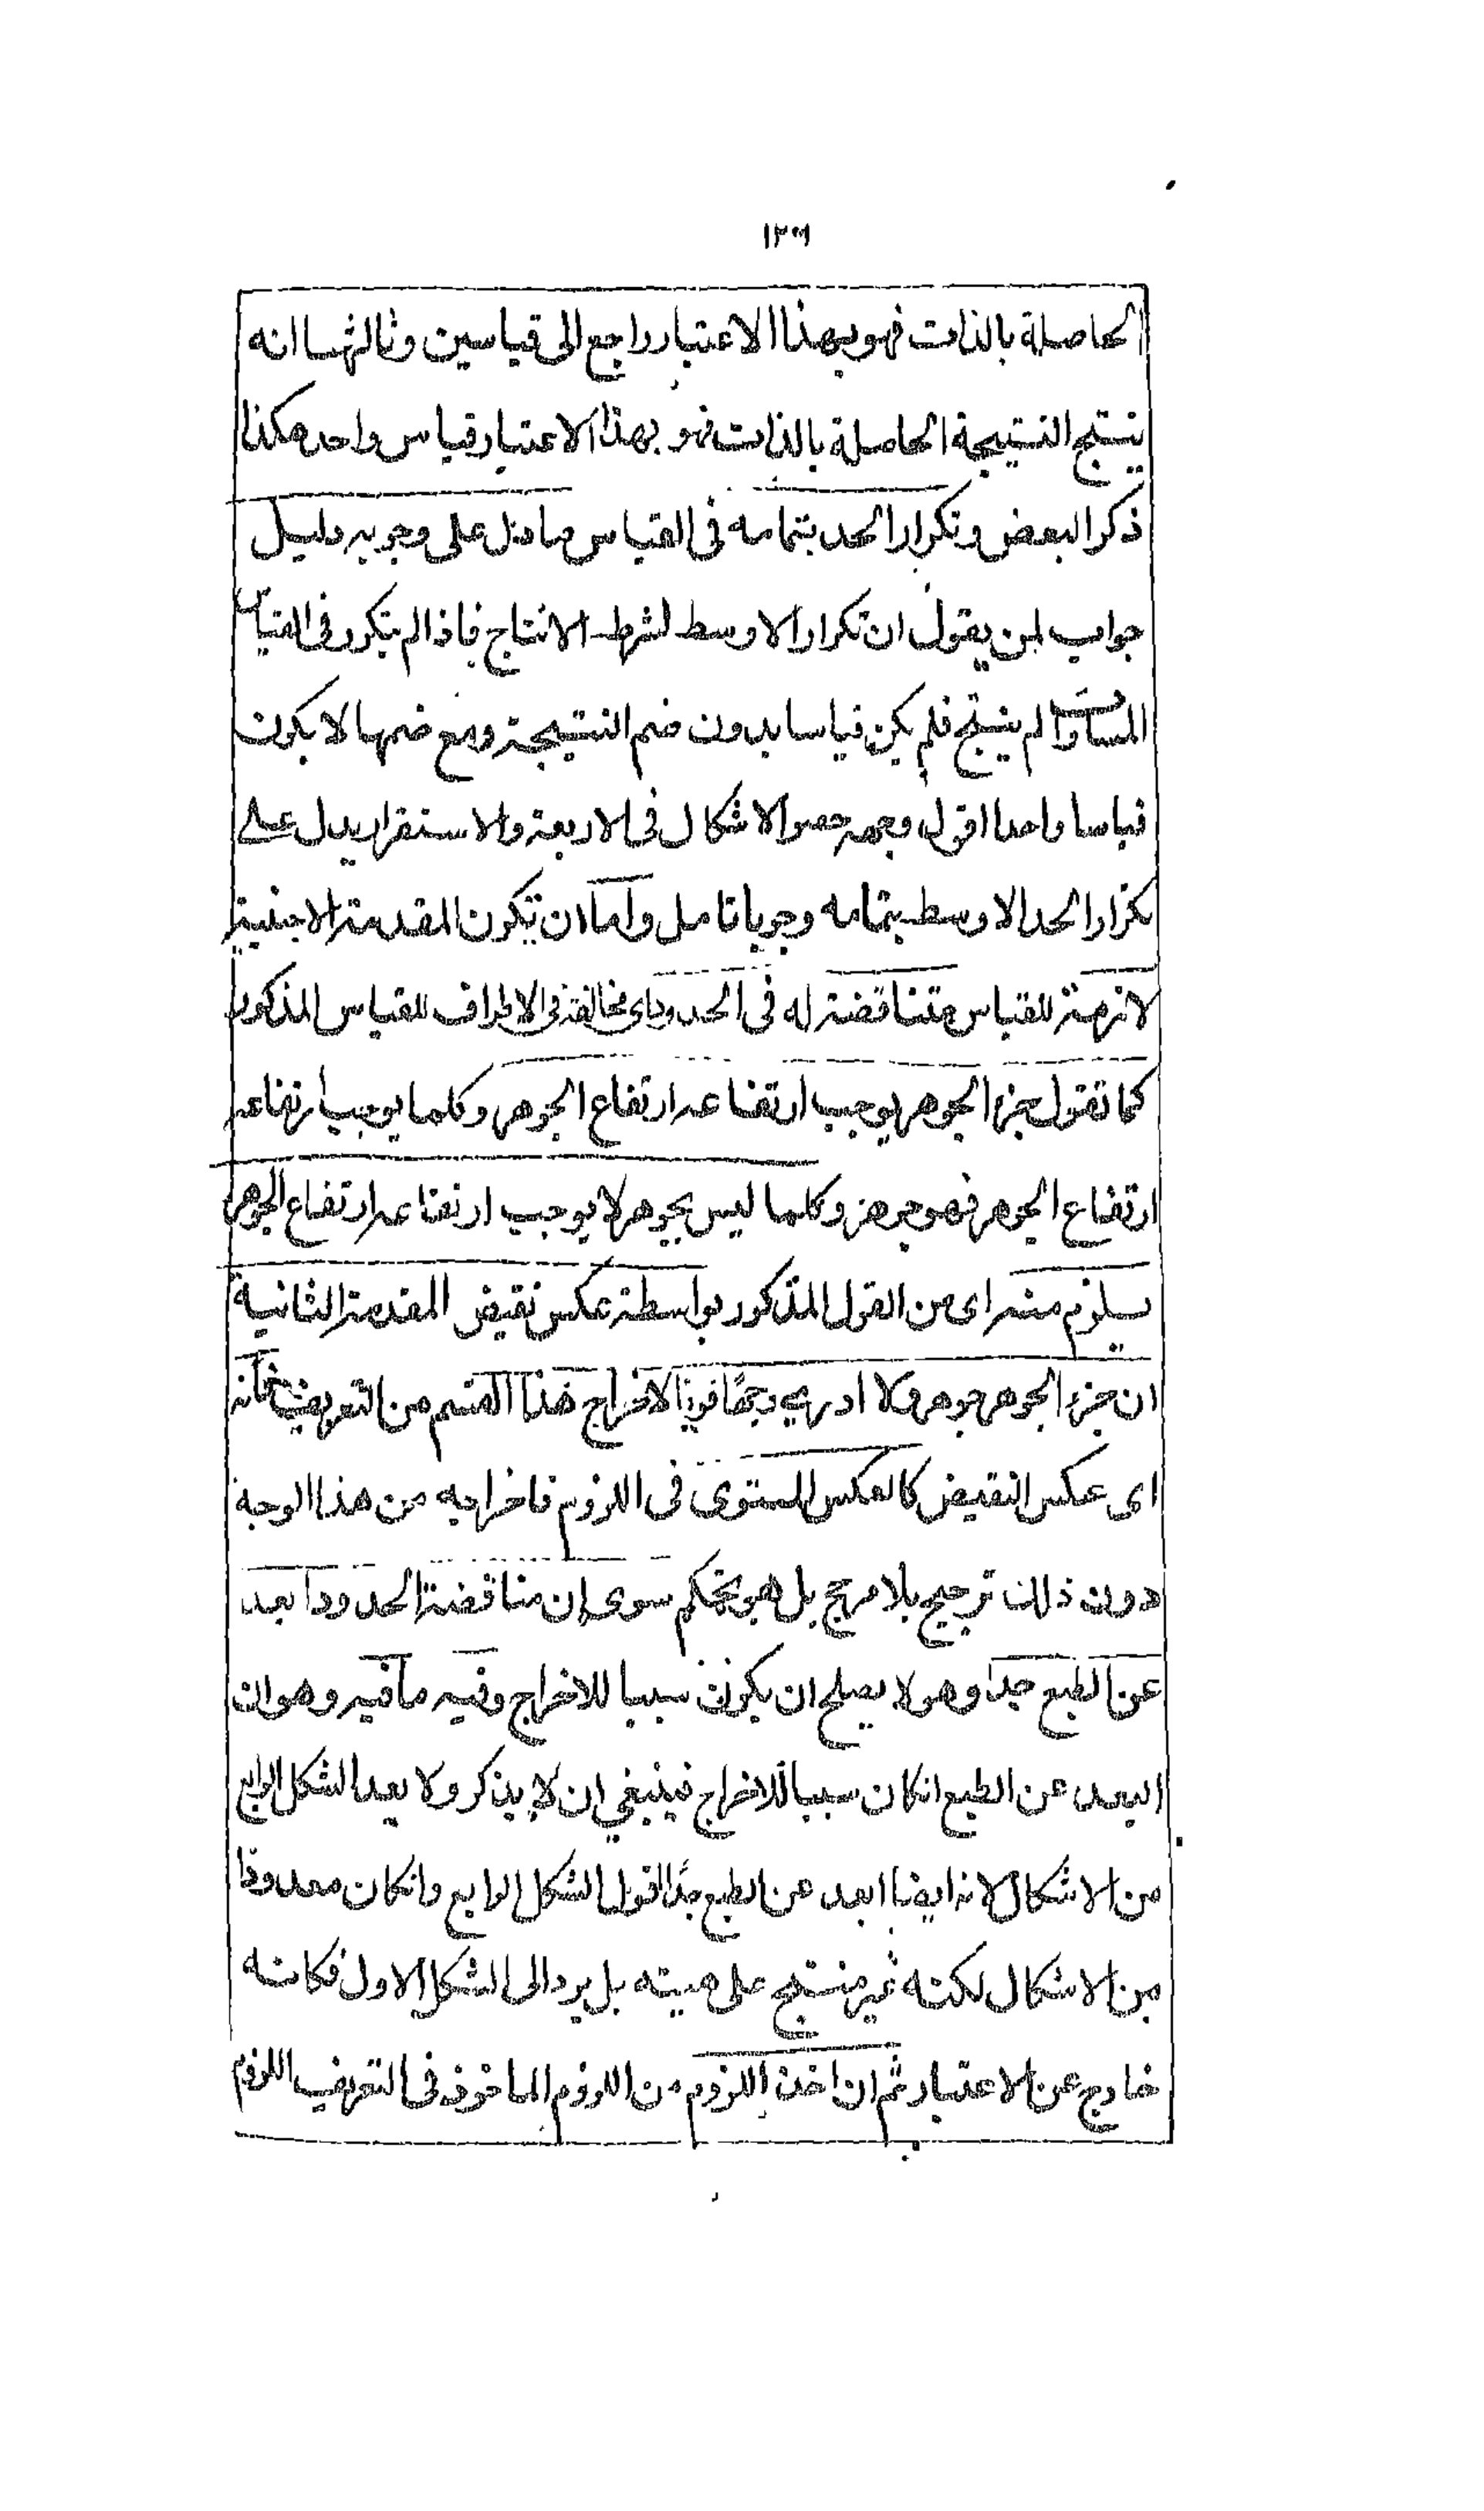 ١٣٦
الحاصلة بالذات فهو بهذا الاعتبار راجع الى قياسين وثالثهما انه
ينتج النتيجة الحاصلة بالذات فهو بهذا الاعتبار قياس واحد هكذا
ذكر البعض وتكرار الحد بتمامه فى القياس ما دل على وجوبه دليل
جواب لمن يقول ان تكرار الاوسط لشرط الانتاج فاذا لم يتكرر فى القياس
المساواة لم ينتج فلم يكن قياسا بدون ضم النتيجة ومع ضمها لا يكون
قياسا واحدا اقول وجه حصر الاشكال فى الاربعة والاستقرار يدل على
تكرار الحد الاوسط بتمامه وجوبا تامل واما ان تكون المقدمة الاجنبية
لازمة للقياس متناقضة له فى الحدود اى مخالفة فى الاطراف للقياس المذكور
كما تقول جزء الجوهر يوجب ارتفاعه ارتفاع الجوهر وكلما يوجب ارتفاعه
ارتفاع الجوهر فهو جوهر وكلما ليس بجوهر لا يوجب ارتفاعه ارتفاع الجوهر
يلزم منه اى من القول المذكور بواسطة عكس نقيض المقدمة الثانية
ان جزء الجوهر جوهر ولا ادرى وجها قويا لاخراج هذا القسم من التعريف فانه
اى عكس النقيض كالعكس المستوى فى اللزوم فاخراجه من هذا الوجه
دون ذلك ترجيح بلا مرجح بل هو تحكم سوى ان مناقضة الحدود ابعد
عن الطبع جدا وهو لا يصلح ان يكون سببا للاخراج وفيه ما فيه وهو ان
البعد عن الطبع انكان سببا للاخراج فينبغى ان لا يذكر ولا يعد الشكل الرابع
من الاشكال لانه ايضا ابعد عن الطبع جدا اقول الشكل الرابع وانكان معدودا
من الاشكال لكنه غير منتج على هيئته بل يرد الى الشكل الاول فكانه
خارج عن الاعتبار ثم ان اخذ اللزوم من اللزوم الماخوذ فى التعريف اللزوم